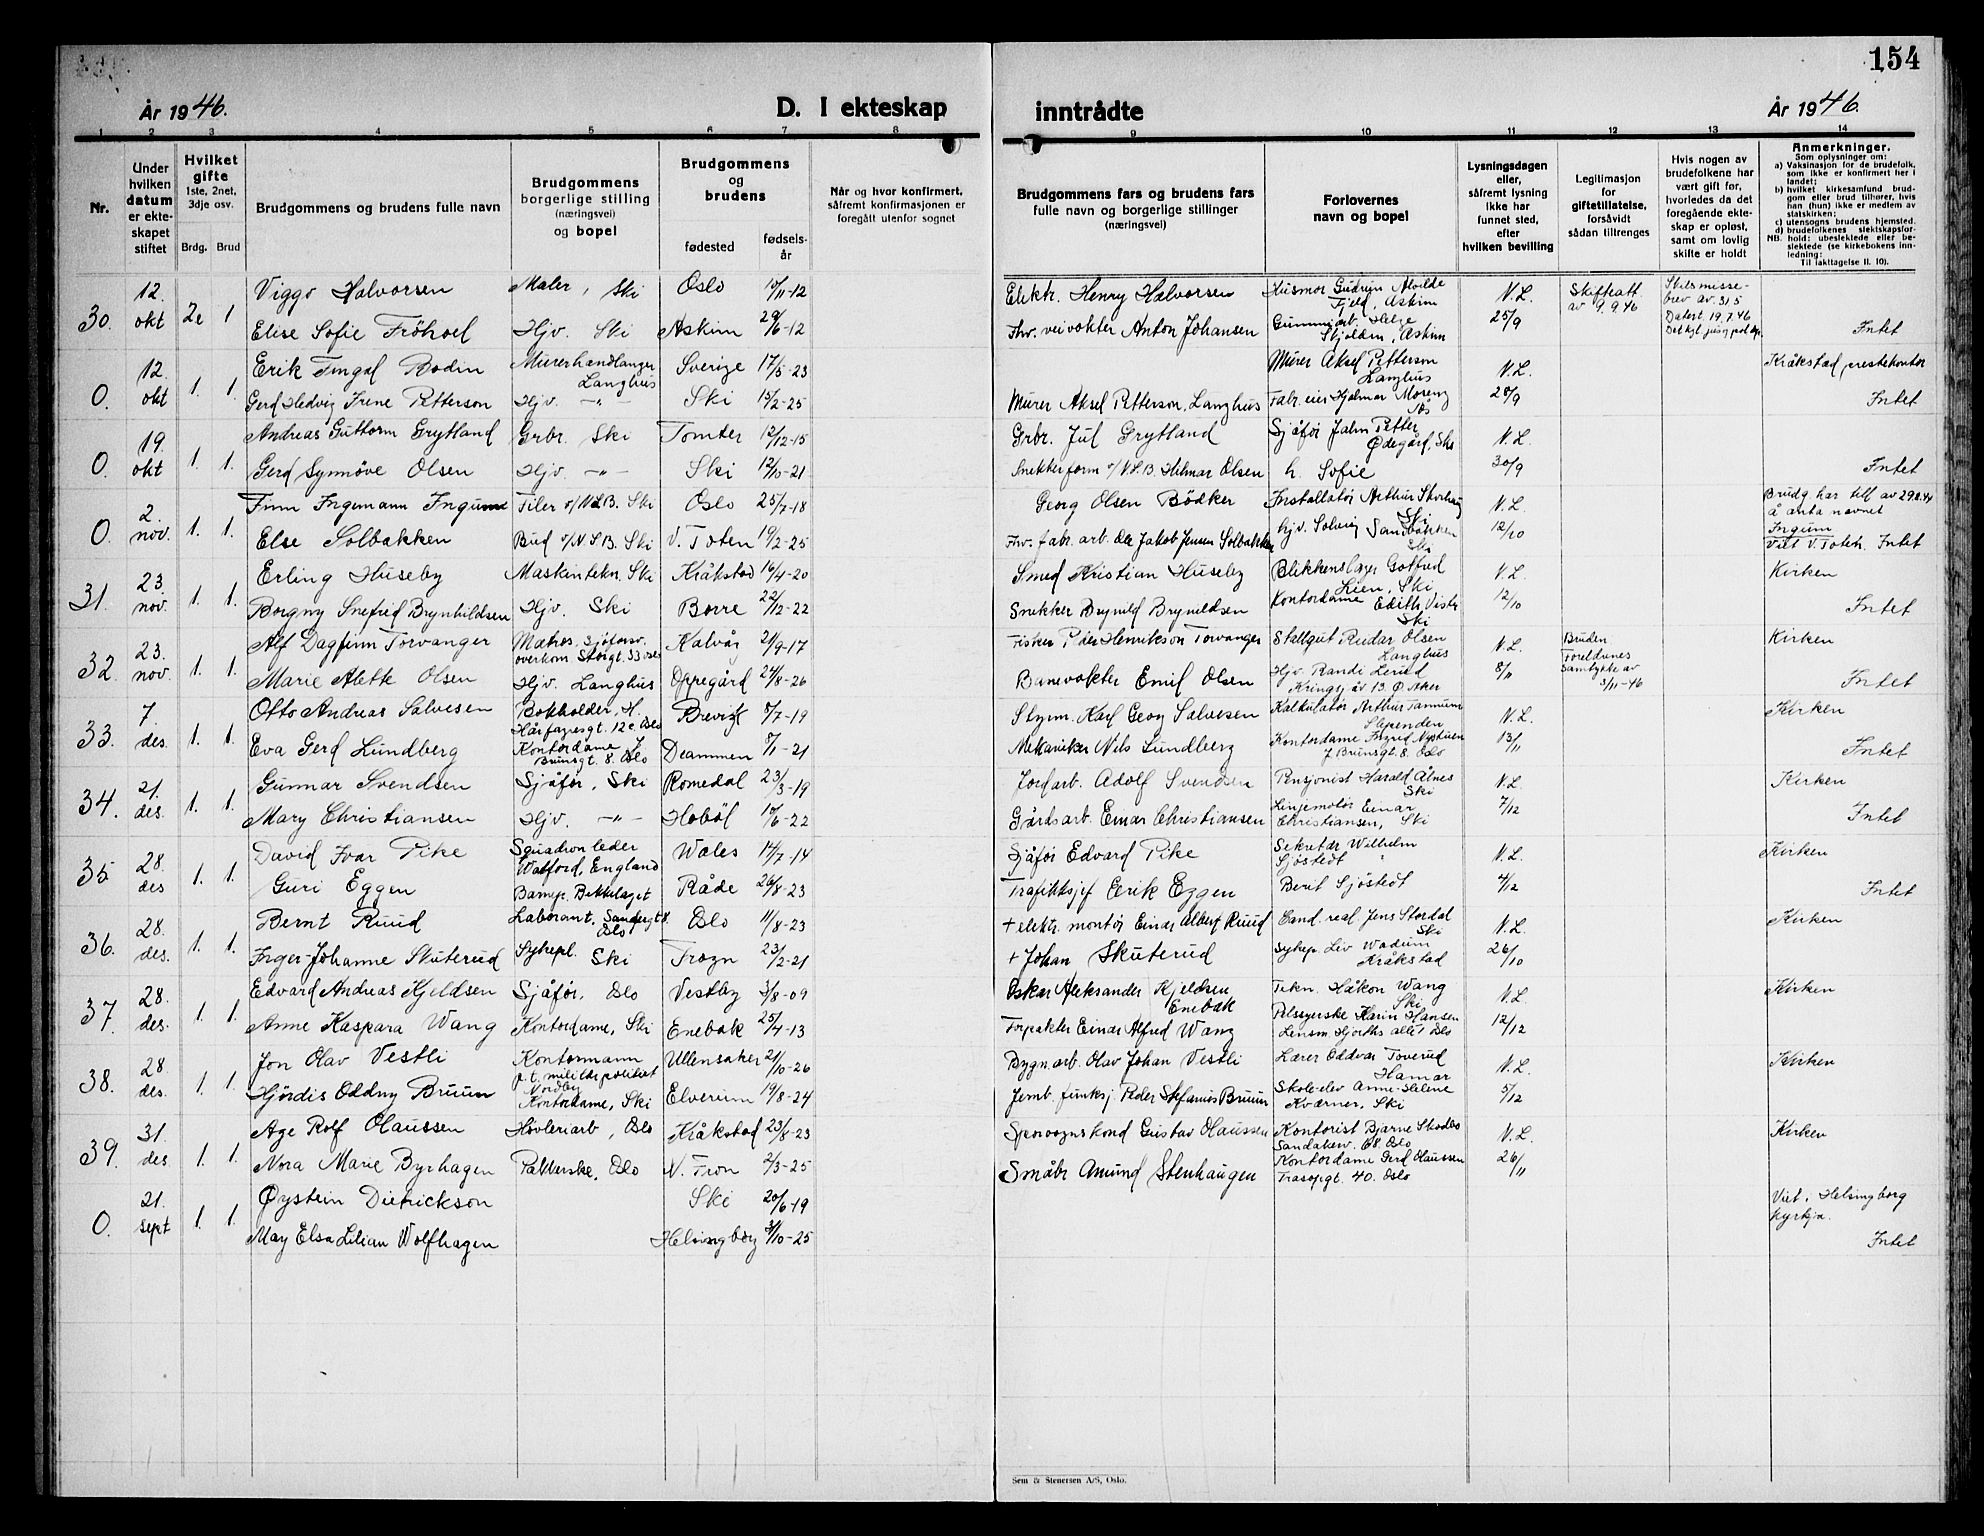 154
År 1946.
D. I ekteskap inntrådte
År 1946.
1 2 3 4 5 6 7 8 9 10 11 12 13 14
Nr.
Under hvilken datum er ekteskapet stiftet
Hvilket gifte
1ste, 2net, 3dje osv.
Brdg. Brud
Brudgommens og brudens fulle navn
Brudgommens borgerlige stilling (næringsvei) og bopel
Brudgommens og brudens
fødested
fødselsår
Når og hvor konfirmert, såfremt konfirmasjonen er foregått utenfor sognet
Brudgommens fars og brudens fars fulle navn og borgerlige stillinger (næringsvei)
Forlovernes navn og bopel
Lysningsdagen eller, såfremt lysning ikke har funnet sted, efter hvilken bevilling
Legitimasjon for giftetillatelse, forsåvidt sådan tiltrenges
Hvis nogen av brudefolkene har vært gift før, hvorledes da det foregående ekteskap er opløst, samt om lovlig skifte er holdt
Anmerkninger.
Som oplysninger om:
a) Vaksinasjon for de brudefolk, som ikke er konfirmert her i landet;
b) hvilket kirkesamfund brudgom eller brud tilhører, hvis han (hun) ikke er medlem av statskirken;
c) utensogns brudens hjemsted.
d) brudefolkenes slektskapsforhold: ubeslektede eller beslektede (se kirkebokens innledning:
NB.
Til iakttagelse II. 10).
30. 12. okt 2e 1
Viggo Halvorsen Maler, Ski Oslo 10/11-12 Elektr. Henry Halvorsen Husmor Gudrun Alvilde Fjeld, Askim N.L. 25/9 Skifteatt. av 9.9.46 Skilsmissebrev av 31.5 Datert 19.7.46
Elise Sofie Fröhoel Hjv. Ski Askim 29/6-12 Fhv. veivokter Anton Johansen Gummiarb. Helge Skjolden, Askim Intet
0. 12. okt 1. 1.
Erik Fingal Bodin Murerhandlanger Langhus Sverige 17/5-23 Murer Aksel Petterson Langhus N.L. 28/9 Kråkstad prestekontor
Gerd Hedvig Irene Petterson Hjv. -"- Ski 15/2-25 Murer Aksel Petterson, Langhus Fabr. eier Hjalmar Morenz Ås Intet
0. 19. okt 1. 1.
Andreas Guttorm Grytland Grbr. Ski Tomter 12/12-15 Grbr. Jul Grytland Sjåfør John Petter Ødegård, Ski N.L. 30/9
Gerd Synnöve Olsen Hjv. -"- Ski 12/10-21 Snekkerform v/N.S.B. Hilmar Olsen h. Sofie Intet
0. 2. nov. 1. 1.
Finn Ingemann Ingum Filer v/N.S.B. Ski Oslo 25/7-18 Georg Olsen Bödker Installatør Arthur Skorhaug Ski N.L. 12/10 Brudg. har till av 29.8.44 å anta navnet Ingum
Else Solbakken Bud v/N.S.B. Ski V. Toten 19/2-25 Fhv. fabr. arb. Ole Jakob Jensen Solbakken hjv. Solveig Sandbakken Ski Viet V. Toten. Intet
31. 23. nov. 1. 1.
Erling Huseby Maskintekn. Ski Kråkstad 16/4-20 Smed Kristian Huseby Blikkenslager Gotfred Lien, Ski N.L. 12/10 Kirken
Borgny Snefrid Brynhildsen Hjv. Ski Borre 22/12-22 Snekker Brynild Brynildsen Kontordame Edith Vister Ski Intet
32. 23. nov. 1. 1.
Alf Dagfinn Torvanger Matros. Sjöforsv. overkom. Storgt. 33 Oslo Kalvåg 21/9-17 Fisker Peder Henrikson Torvanger Stallgut Reidar Olsen Langhus N.L. 8/11 Bruden Foreldrenes samtykke av 3/11-46 Kirken
Marie Alette Olsen Hjv. Langhus Oppegård 24/8-26 Banevokter Emil Olsen Hjv. Randi Lerud Kringsj. åv 13. Ö. Aker Intet
33. 7. des. 1. 1.
Otto Andreas Salvesen Bokholder, H. Hårfagresgt. 12c Oslo Brevik 8/7-19 Styrm. Karl Georg Salvesen Kalkulatør Arthur Tannum Slependen N.L. 13/11 Kirken
Eva Gerd Lundberg Kontordame J. Brunsgt. 8. Oslo Drammen 8/1-21 Mekaniker Nils Lundberg Kontordame Ingrid Nystuen J. Brunsgt. 8. Oslo Intet
34. 21. des. 1. 1.
Gunnar Svendsen Sjåfør, Ski Romedal 23/3-19 Jordarb. Adolf Svendsen Pensjonist Harald Ålnes Ski N.L. 7/12 Kirken
Mary Christiansen Hjv. -"- Hobøl 10/6-22 Gårdsarb. Einar Christiansen Linjemotør Einar Christiansen, Ski Intet
35 28. des 1. 1.
David Ivar Pike Squadron leder Watford, England Wales 14/7-14 Sjåfør Edvard Pike Sekretær Wilhelm Sjöstedt N.L. 4/12 Kirken
Guri Eggen Bekkelaget Råde 26/8-23 Trafikksjef Eerik Eggen Berit Sjöstedt Intet
36. 28. des. 1. 1.
Bernt Ruud Laborant, Oslo Oslo 11/8-23 + elektr. montør Einar Albert Ruud Cand. real. Jens Stordal Ski N.L. 26/10 Kirken
Inger-Johanne Skuterud Sykepl. Ski Frogn 23/2-21 + Johan Skuterud Sykepl. Liv Wadum Kråkstad
37. 28. des. 1. 1.
Edvard Andreas Kjeldsen Sjåfør, Oslo Vestby 3/8-09 Oskar Aleksander Kjeldsen Enebak Tekn. Håkon Wang Ski N.L. 12/12 Kirken
Anne Kaspara Wang Kontordame, Ski Enebak 25/4-13 Forpakter Einar Alfred Wang Pelssyerske Karin Hansen Lensm. Hjorths allé 1 Oslo
38. 28. des. 1. 1.
Jon Olav Vestli Kontormann p.t. militærpolitiet Nordby Ullensaker 21/10-26 Bygn.arb. Olav Johan Vestli Lærer Oddvar Toverud Hamar N.L. 5/12 Kirken
Hjördis Oddny Bruun Kontordame, Ski Elverum 19/8-24 Jernb. funksj. Peder Stefanus Bruun Skole-elev Anne-Helene Kværner, Ski
39. 31. des 1. 1.
Åge Rolf Olaussen Høvleriarb, Oslo Kråkstad 23/8-23 Sporvognskond Gustav Olaussen Kontorist Bjarne Skodbo Sandakerv. 68. Oslo N.L. 26/11 Kirken
Nora Marie Byrhagen Pakkerske, Oslo N. Fron 2/3-25 Småbr Amund Stenhaugen Kontordame Gerd Olaussen 40. Oslo
0. 21. sept 1. 1.
Øystein Dietrickson Ski 20/6-19 Viet i Helsingborg kyrkja.
May Elsa Lilian Wolfhagen Helsingborg 3/10-25 Intet
Sem & Stenersen A/S, Oslo.